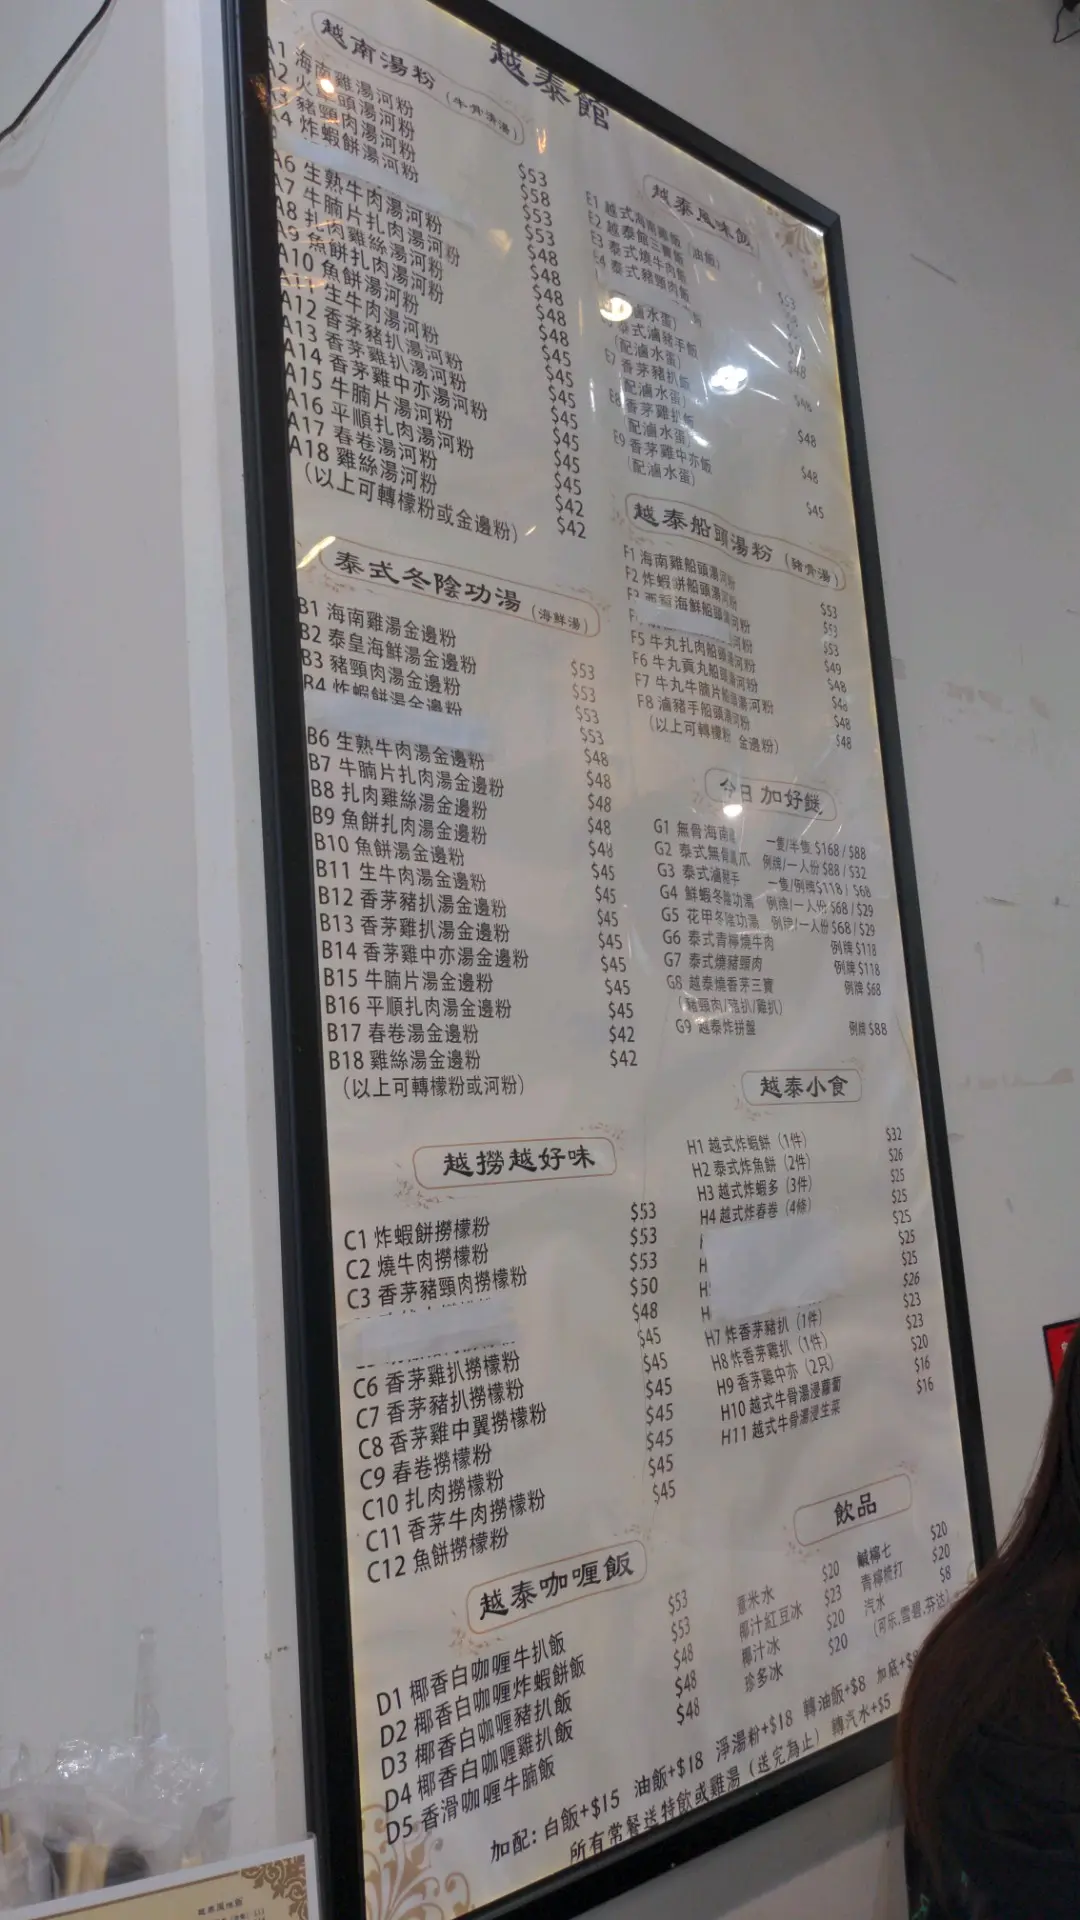 越泰館
越南湯粉（牛骨清湯）
A1 海南雞湯河粉 $53
A2 火車頭湯河粉 $58
A3 豬頸肉湯河粉 $53
A4 炸蝦餅湯河粉 $53
A6 生熟牛肉湯河粉 $48
A7 牛腩片扎肉湯河粉 $48
A8 扎肉雞絲湯河粉 $48
A9 魚餅扎肉湯河粉 $48
A10 魚餅湯河粉 $45
A11 生牛肉湯河粉 $45
A12 香茅豬扒湯河粉 $45
A13 香茅雞扒湯河粉 $45
A14 香茅雞中亦湯河粉 $45
A15 牛腩片湯河粉 $45
A16 平順扎肉湯河粉 $45
A17 春卷湯河粉 $42
A18 雞絲湯河粉 $42
（以上可轉檬粉或金邊粉）
泰式冬陰功湯（海鮮湯）
B1 海南雞湯金邊粉 $53
B2 泰皇海鮮湯金邊粉 $53
B3 豬頸肉湯金邊粉 $53
B4 炸蝦餅湯金邊粉 $53
B6 生熟牛肉湯金邊粉 $48
B7 牛腩片扎肉湯金邊粉 $48
B8 扎肉雞絲湯金邊粉 $48
B9 魚餅扎肉湯金邊粉 $48
B10 魚餅湯金邊粉 $48
B11 生牛肉湯金邊粉 $45
B12 香茅豬扒湯金邊粉 $45
B13 香茅雞扒湯金邊粉 $45
B14 香茅雞中亦湯金邊粉 $45
B15 牛腩片湯金邊粉 $45
B16 平順扎肉湯金邊粉 $45
B17 春卷湯金邊粉 $42
B18 雞絲湯金邊粉 $42
（以上可轉檬粉或河粉）
越撈越好味
C1 炸蝦餅撈檬粉 $53
C2 燒牛肉撈檬粉 $53
C3 香茅豬頸肉撈檬粉 $53
$50
$48
C6 香茅雞扒撈檬粉 $45
C7 香茅豬扒撈檬粉 $45
C8 香茅雞中翼撈檬粉 $45
C9 春卷撈檬粉 $45
C10 扎肉撈檬粉 $45
C11 香茅牛肉撈檬粉 $45
C12 魚餅撈檬粉 $45
越泰咖喱飯
D1 椰香白咖喱牛扒飯 $53
D2 椰香白咖喱炸蝦餅飯 $53
D3 椰香白咖喱豬扒飯 $48
D4 椰香白咖喱雞扒飯 $48
D5 香滑咖喱牛腩飯 $48
越泰風味飯
E1 越式海南雞飯（油飯）
E2 越泰館三寶飯
E3 泰式燒牛肉飯
E4 泰式豬頸肉飯
滷水蛋）
泰式滷豬手飯
（配滷水蛋）
E7 香茅豬扒飯
（配滷水蛋） $48
E8 香茅雞扒飯
（配滷水蛋） $48
E9 香茅雞中亦飯
（配滷水蛋） $45
越泰船頭湯粉（豬骨湯）
F1 海南雞船頭湯河粉 $53
F2 炸蝦餅船頭湯河粉 $53
海鮮船頭湯河粉 $53
河粉 $49
F5 牛丸扎肉船頭湯河粉 $48
F6 牛丸貢丸船頭湯河粉 $48
F7 牛丸牛腩片船頭湯河粉 $48
F8 滷豬手船頭湯河粉 $48
（以上可轉檬粉 金邊粉）
今日加好餸
G1 無骨海南雞 一隻/半隻 $168 / $88
G2 泰式無骨鳳爪 例牌/一人份 $88 / $32
G3 泰式滷豬手 一隻/例牌 $118 / $68
G4 鮮蝦冬陰功湯 例牌/一人份 $68 / $29
G5 花甲冬陰功湯 例牌/一人份 $68 / $29
G6 泰式青檸燒牛肉 例牌 $118
G7 泰式燒豬頸肉 例牌 $118
G8 越泰燒香茅三寶 例牌 $68
（豬頸肉/豬扒/雞扒）
G9 越泰炸拼盤 例牌 $88
越泰小食
H1 越式炸蝦餅（1件） $32
H2 泰式炸魚餅（2件） $26
H3 越式炸蝦多（3件） $25
H4 越式炸春卷（4條） $25
$25
$25
$25
$26
H7 炸香茅豬扒（1件） $23
H8 炸香茅雞扒（1件） $23
H9 香茅雞中亦（2只） $20
H10 越式牛骨湯浸蘿蔔 $16
H11 越式牛骨湯浸生菜 $16
飲品
薏米水 $20 鹹檸七 $20
椰汁紅豆冰 $23 青檸梳打 $20
椰汁冰 $20 汽水 $8
珍多冰 $20 （可乐,雪碧,芬达）
加配: 白飯+$15 油飯+$18 淨湯粉+$18 轉油飯+$8 加底+$
所有常餐送特飲或雞湯（送完為止） 轉汽水+$5
越泰風味飯